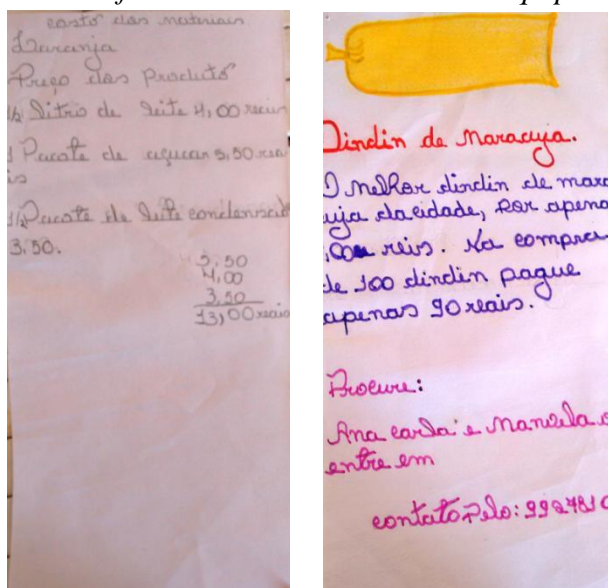 custo dos materiais
Laranja
Preço dos produtos
1/2 litro de leite 4,00 reais
1 Pacote de açucar 5,50 rea
is
1/2 Pacote de leite condensado
3,50.
5,50
4,00
3,50
13,00 reais
Dindin de Maracuja.
O melhor dindin de mara
cuja da cidade, Por apena
reis. Na compra
de 100 dindin pague
apenas 90 reais.
Procure:
Ana carla e Manuela o
entre em
contato Pelo: 992781